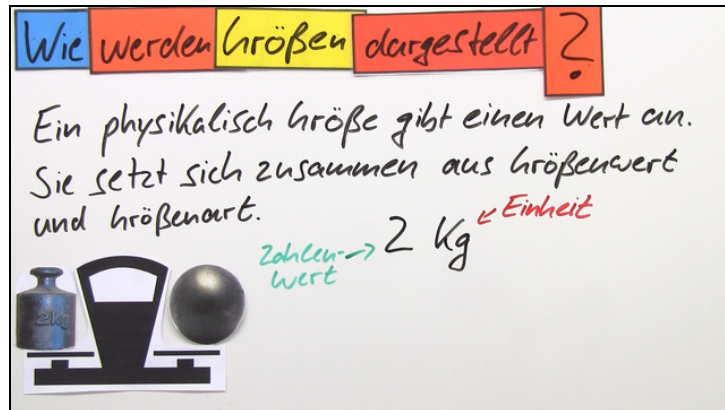 Wie werden Größen dargestellt?
Ein physikalisch Größe gibt einen Wert an.
Sie setzt sich zusammen aus Größenwert
und Größenart.
Zahlen-
wert → 2 Kg ← Einheit
2kg